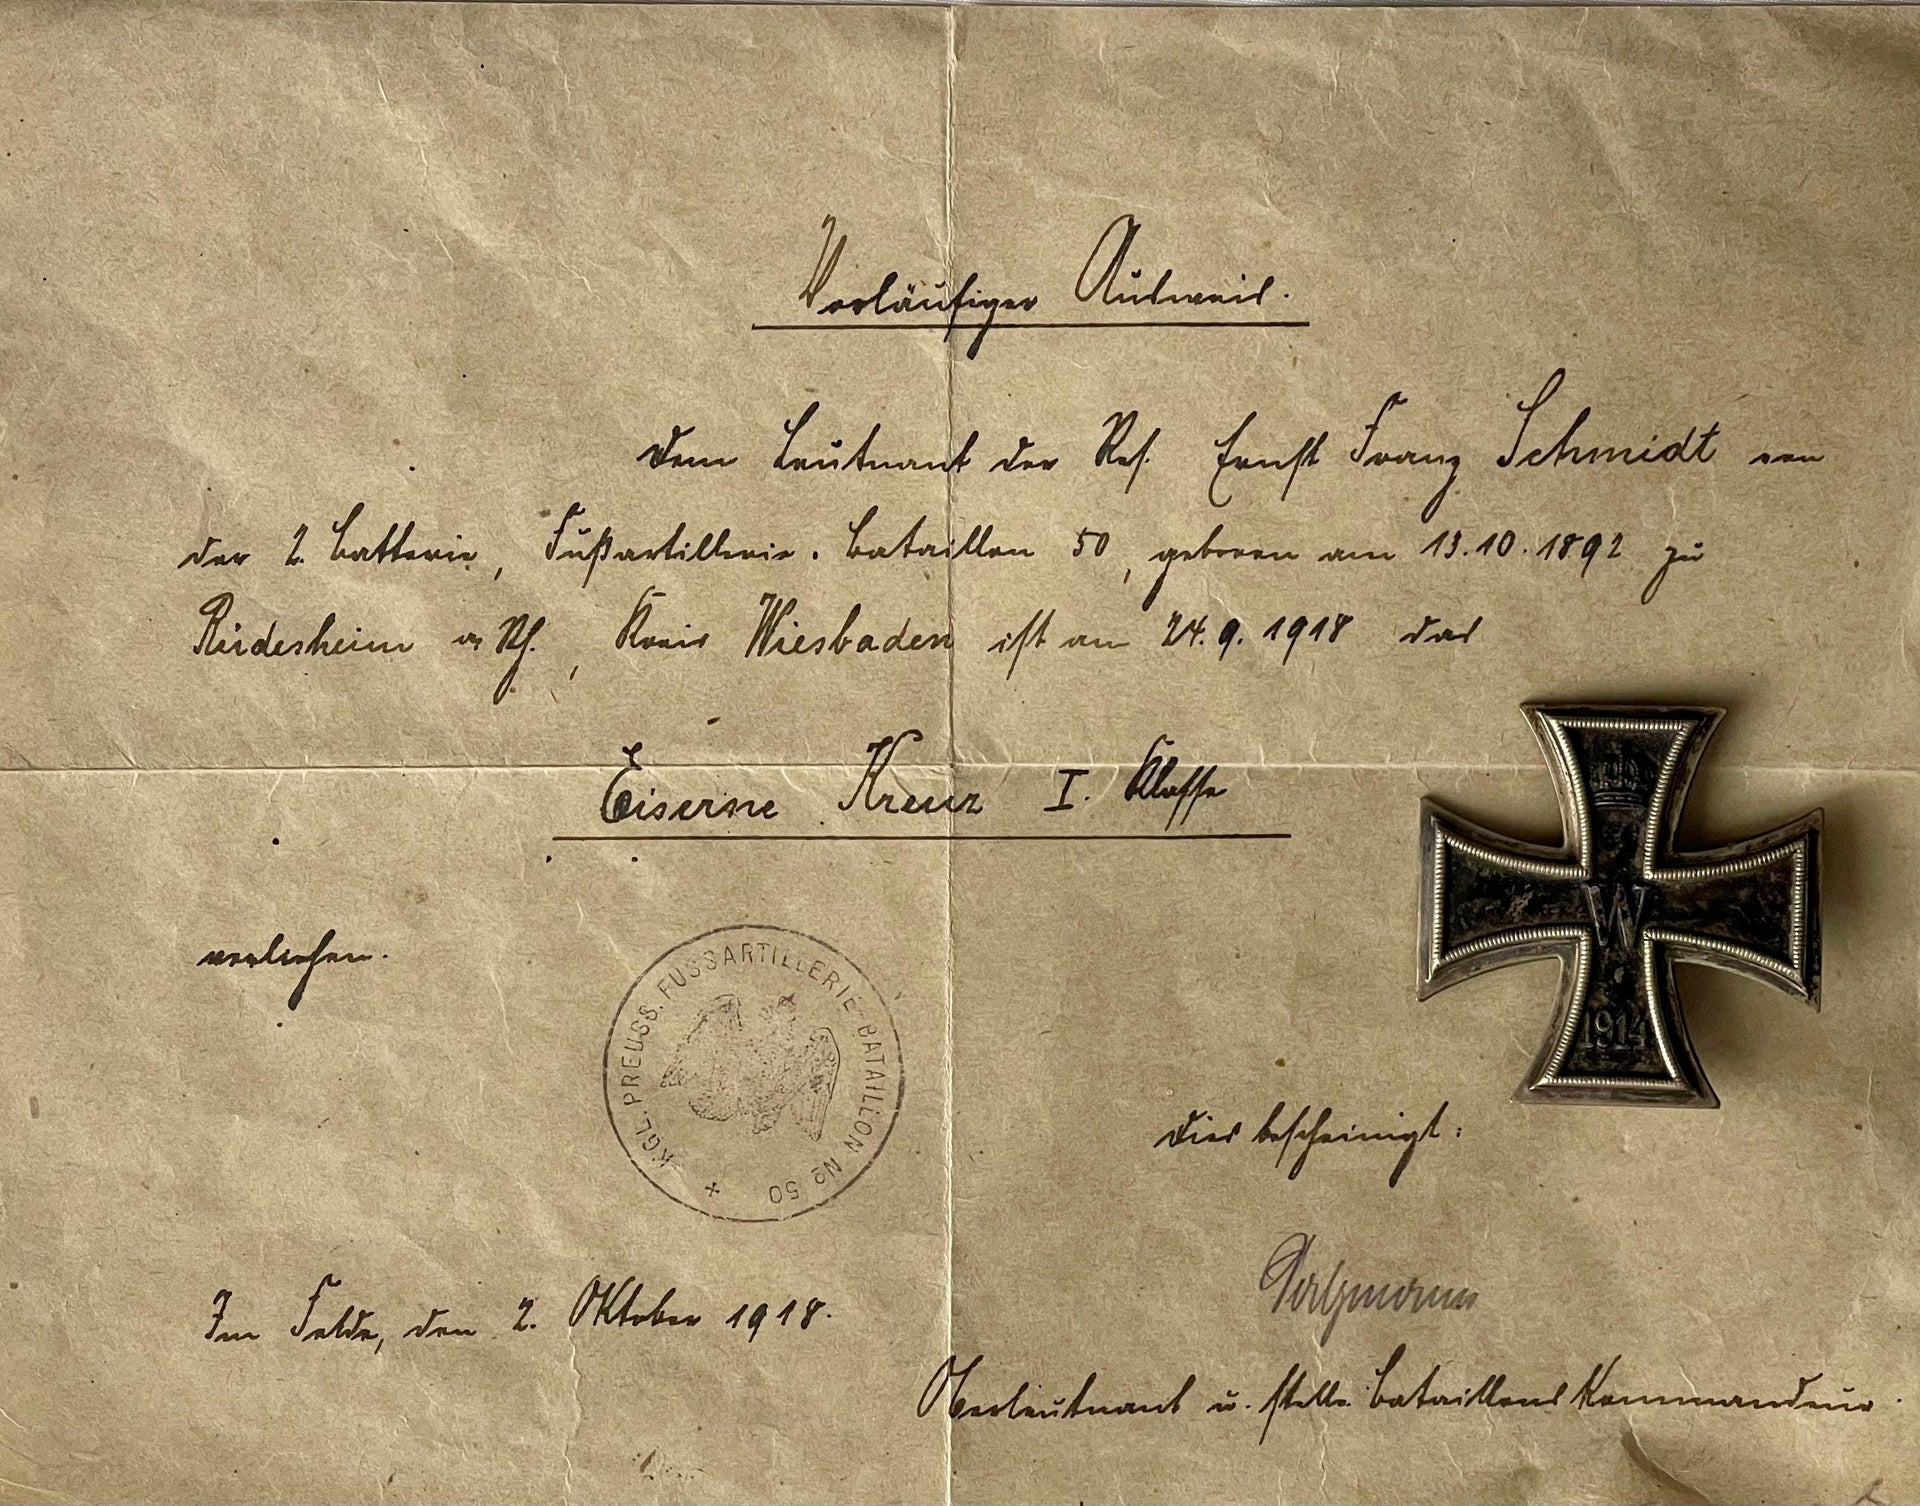 Vorläufiger Ausweis.
Dem Leutnant der Res. Ernst Franz Schmidt von
der 2. Batterie, Fußartillerie-Bataillon 50, geboren am 13.10.1892 zu
Rüdesheim a. Rh., Kreis Wiesbaden ist am 24.9.1918 das
Eiserne Kreuz I. Klasse
verliehen.
KGL. PREUSS. FUSSARTILLERIE-BATAILLON No 50
W
1914
Dies bescheinigt:
Im Felde, den 2. Oktober 1918.
Oberleutnant u. stellv. Bataillons Kommandeur.